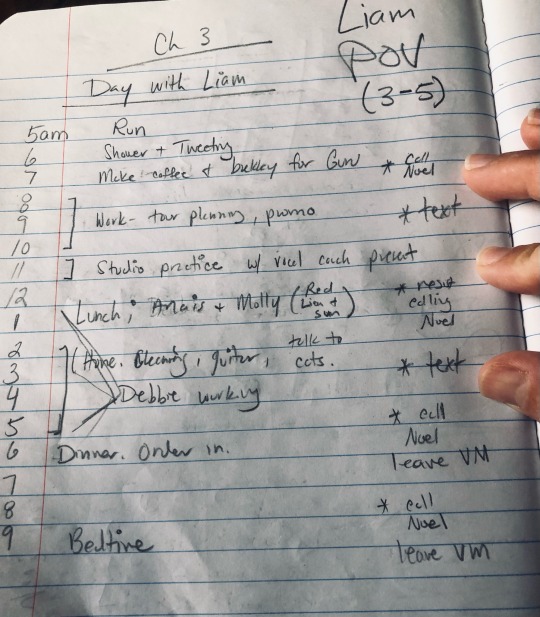 Ch 3
Day with Liam
Liam
POV
(3-5)
5am Run
6 Shower + Tweeting
7 Make coffee + for * call Noel
8
9 Work - tour planning, promo * text
10
11 Studio practice w/ vocal coach present
12 Lunch; Anais + Molly (Red Lion + Sun) * resist calling Noel
1
2 (Home. Cleaning, guitar, talk to cats.
3 * text
4 Debbie working
5 * call Noel
6 Dinner. Order in. leave VM
7
8 * call Noel
9 Bedtime leave VM